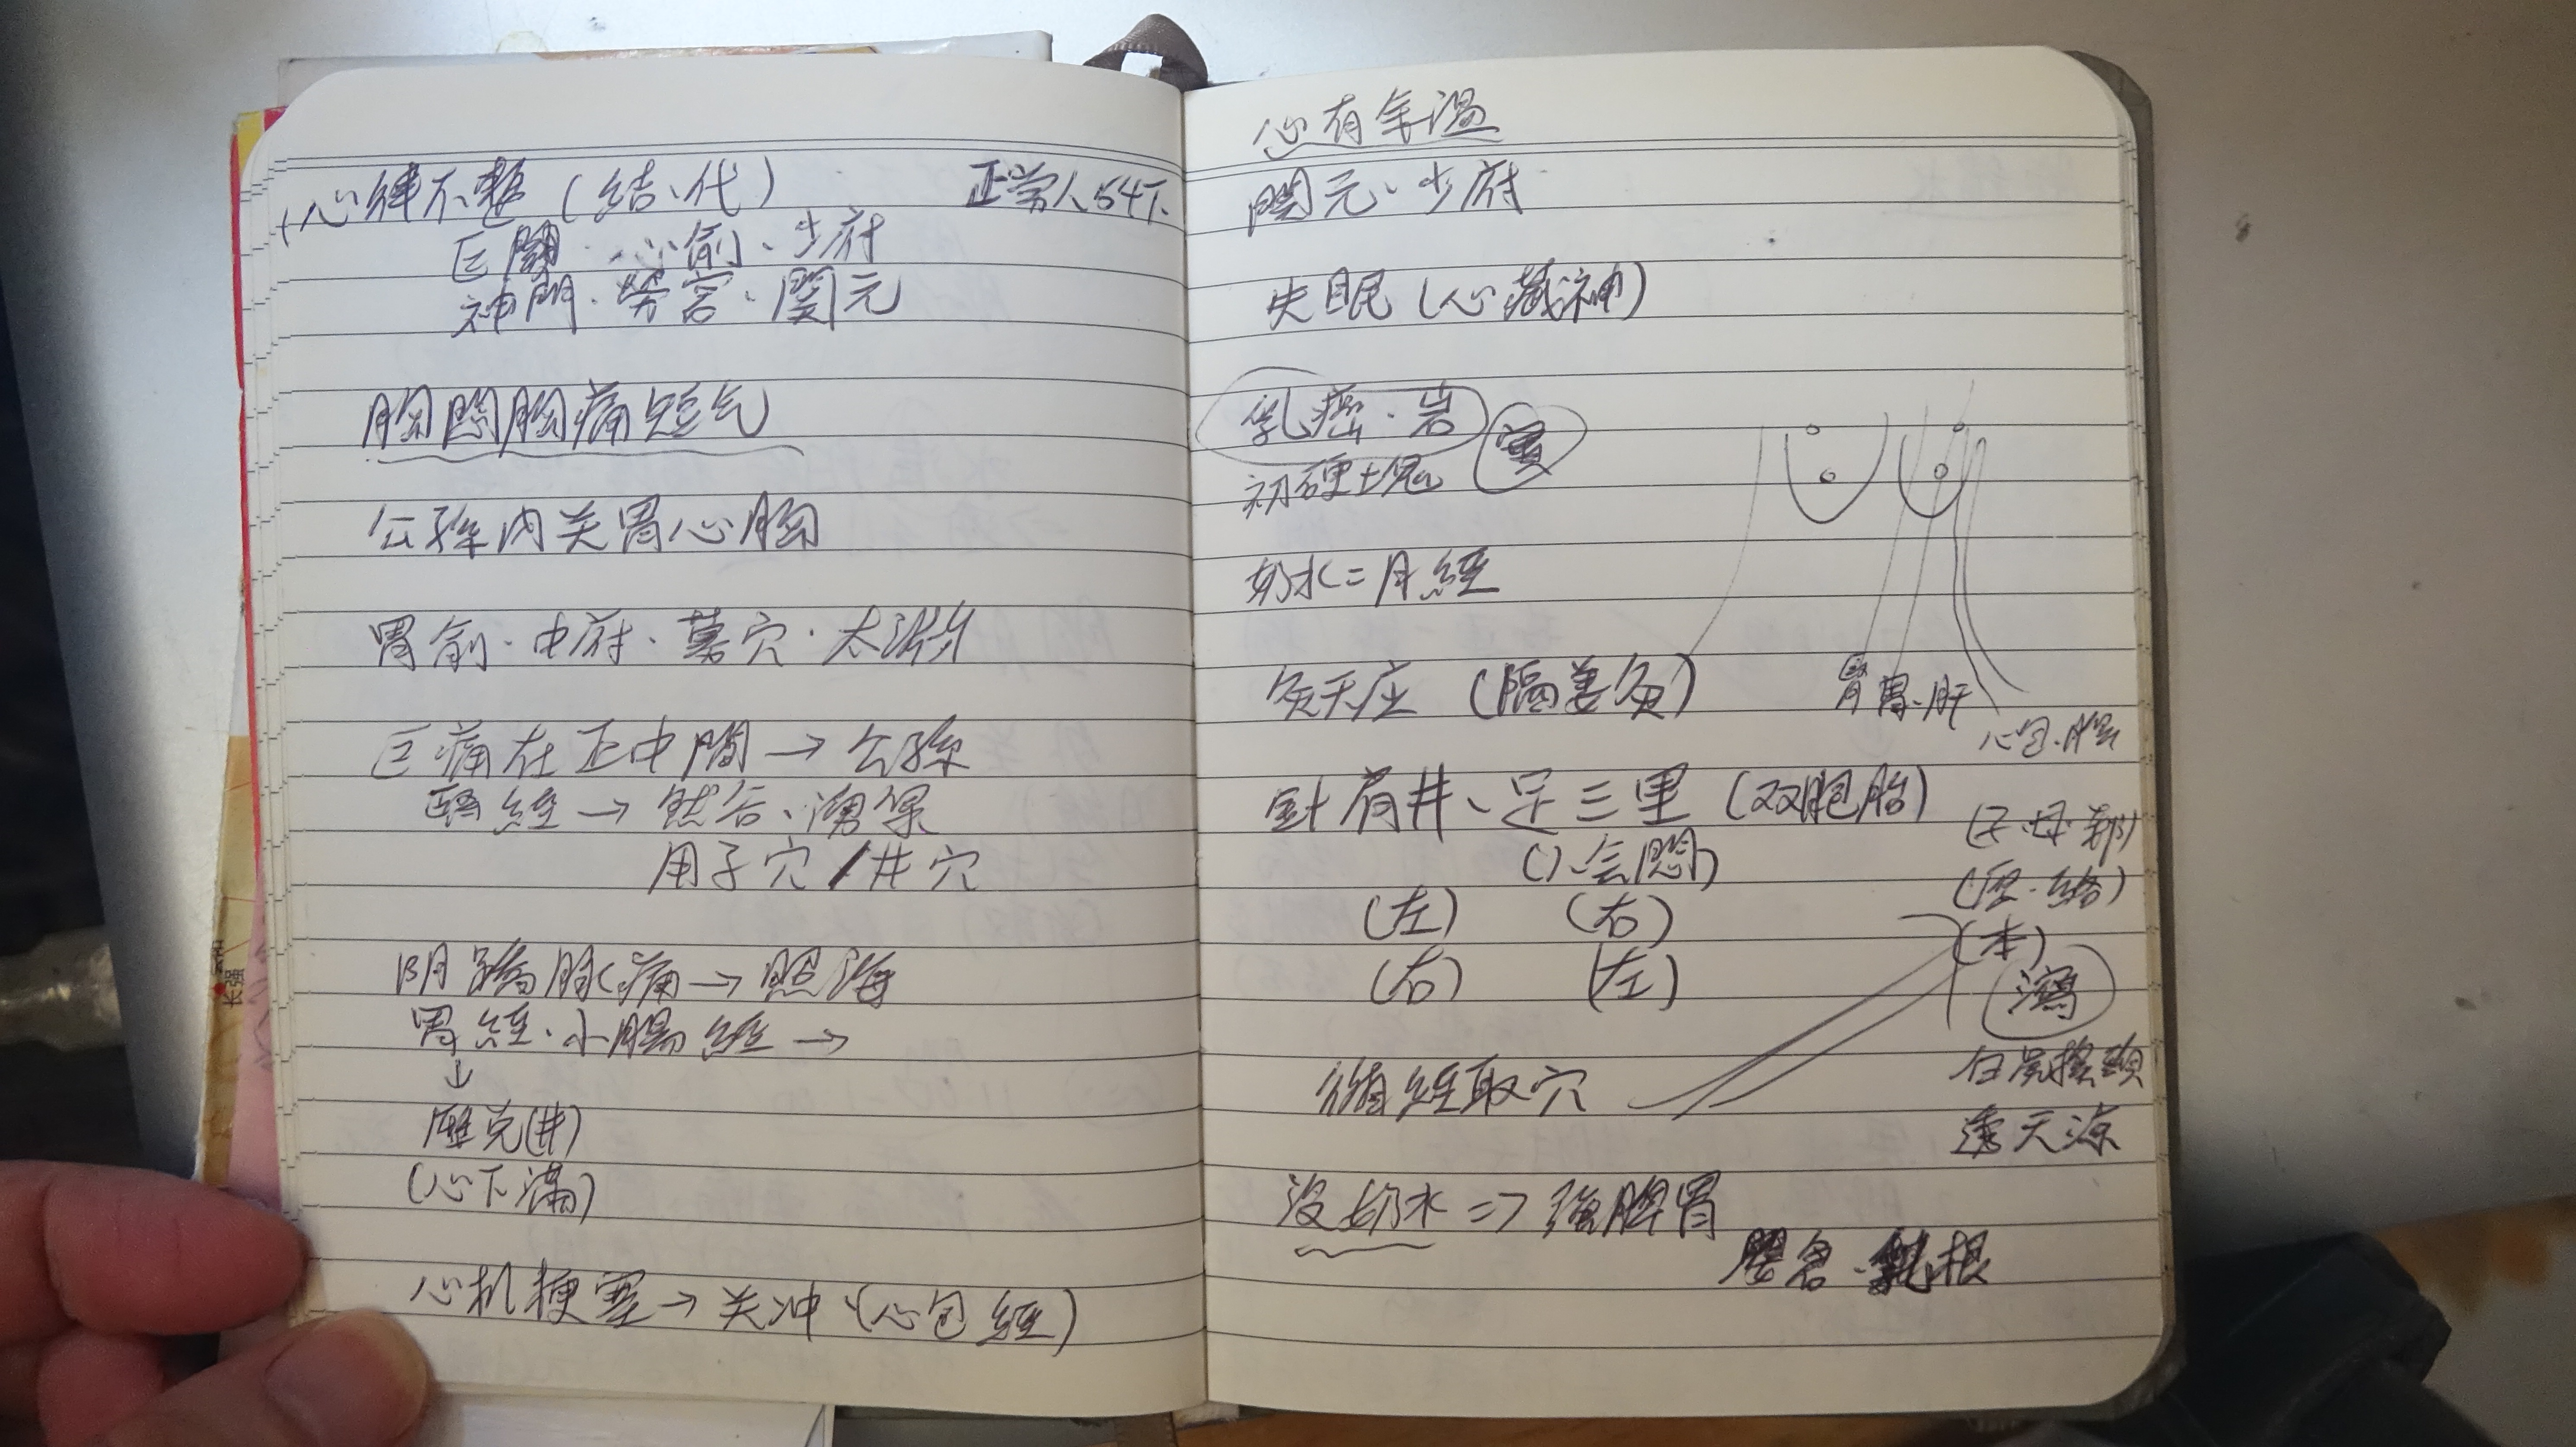 心律不整（結、代） 正常人54下
巨闕、心俞、少府
神門、勞宮、関元
胸悶胸痛短气
公孫內关胃心胸
胃俞、中府、募穴、太渊
痛在正中間→公孫
經→然谷、湧泉
用子穴/井穴
阴蹻脈痛→照海
胃經、小腸經→
↓
厲兌(井)
(心下滿)
心机梗塞→关冲(心包經)
心有余温
関元、少府
失眠(心藏神)
乳癌、岩
初硬土塊
奶水=月經
灸天应(隔姜灸)
腎胃、肝
心包、
針肩井、足三里(双胞胎)
(子、母、郄)
(会悶)
(原、絡)
(左) (右)
(本)
(右) (左)
瀉
循經取穴
白虎摇頭
透天凉
沒奶水=>強脾胃
乳根